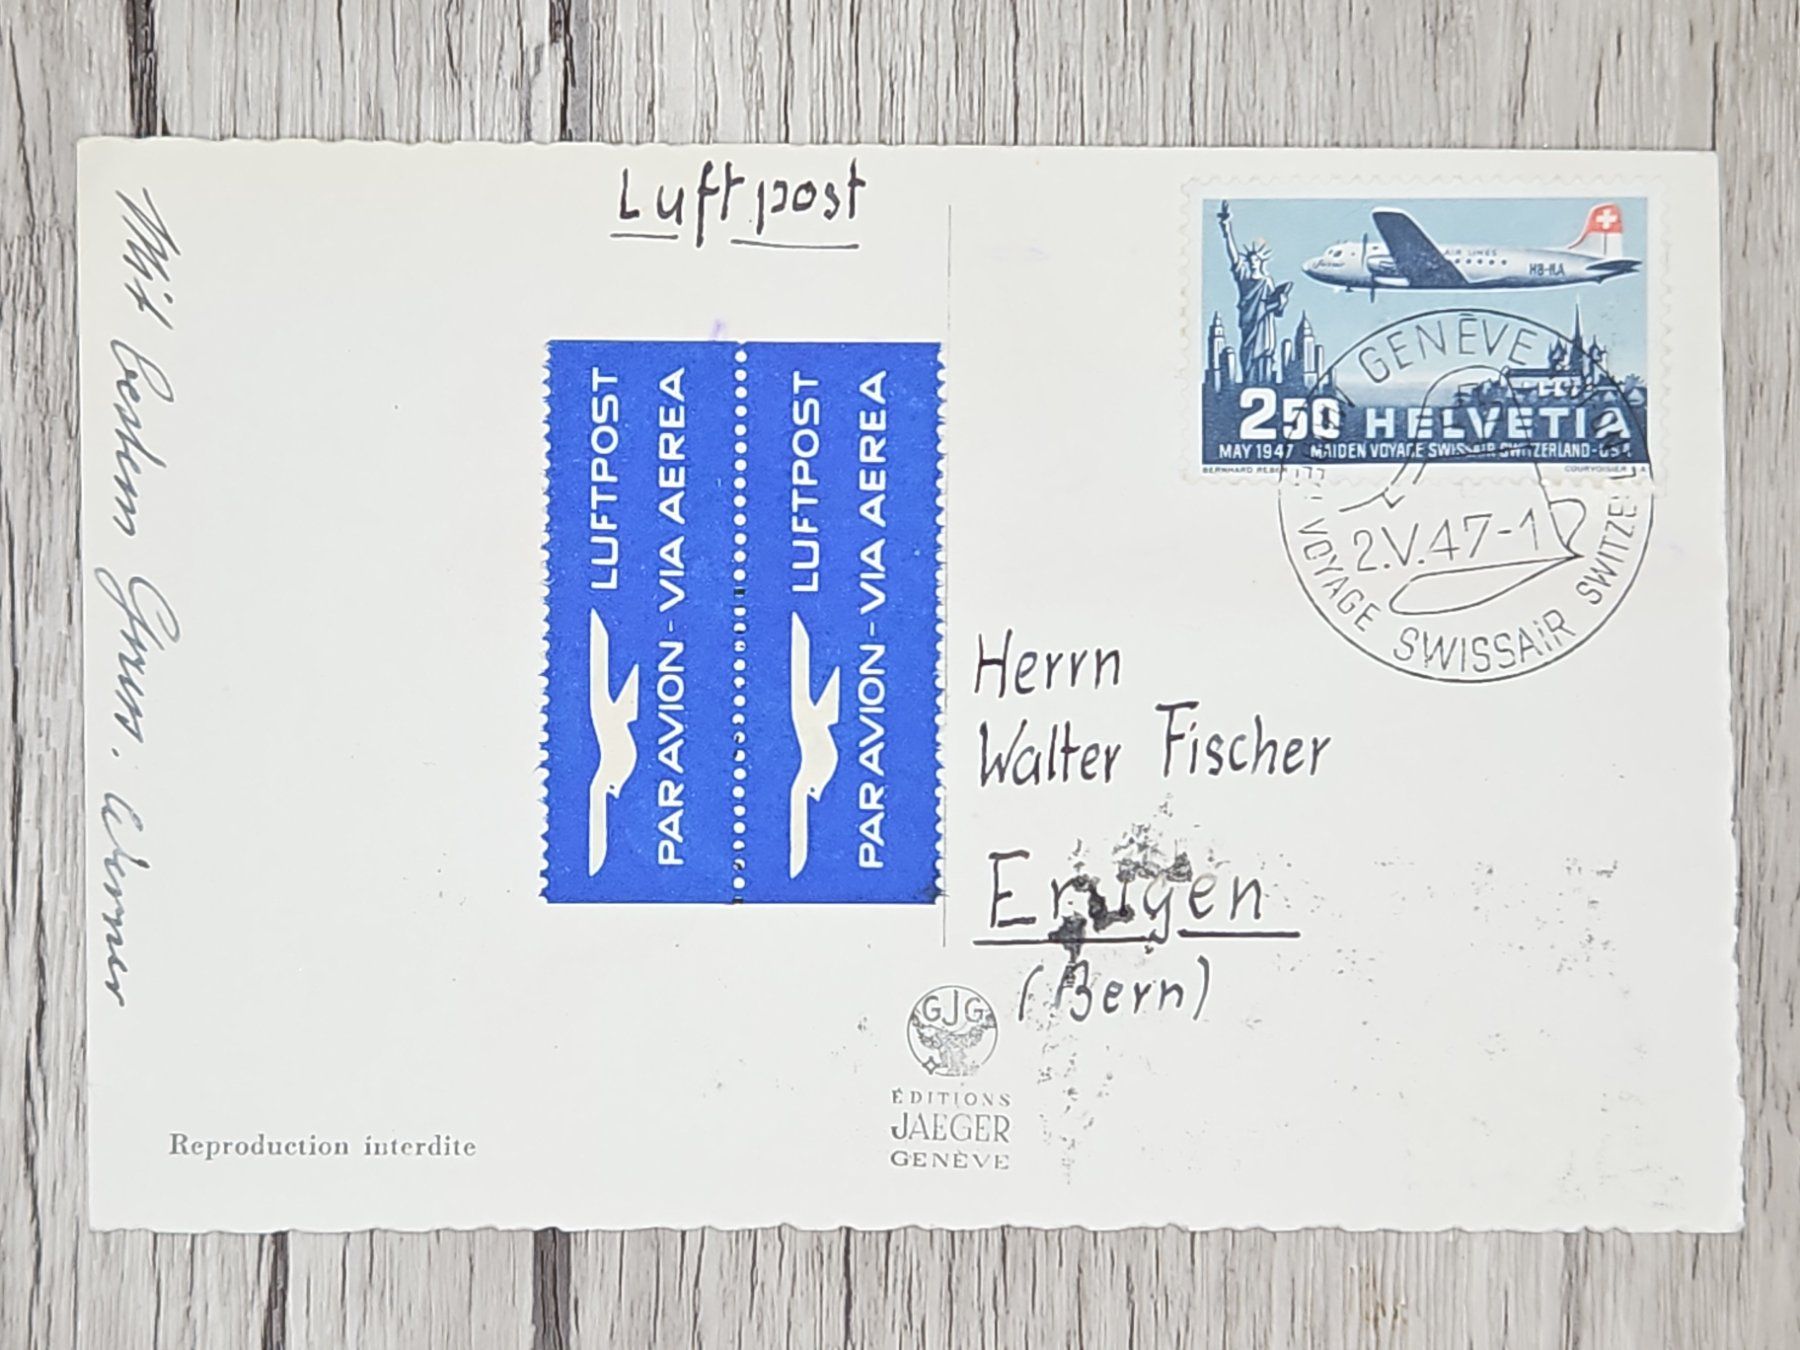 Luftpost
Mit bestem Gruss. Werner
LUFTPOST
PAR AVION - VIA AEREA
LUFTPOST
PAR AVION - VIA AEREA
AIR LINES
HB-ILA
250 HELVETIA
MAY 1947 MAIDEN VOYAGE SWISSAIR SWITZERLAND-USA
BERNHARD REBER
COURVOISIER S A
GENÈVE
2.V.47-1
VOYAGE SWISSAIR
Herrn
Walter Fischer
Ersigen
(Bern)
GJG
ÉDITIONS
JAEGER
GENÈVE
Reproduction interdite